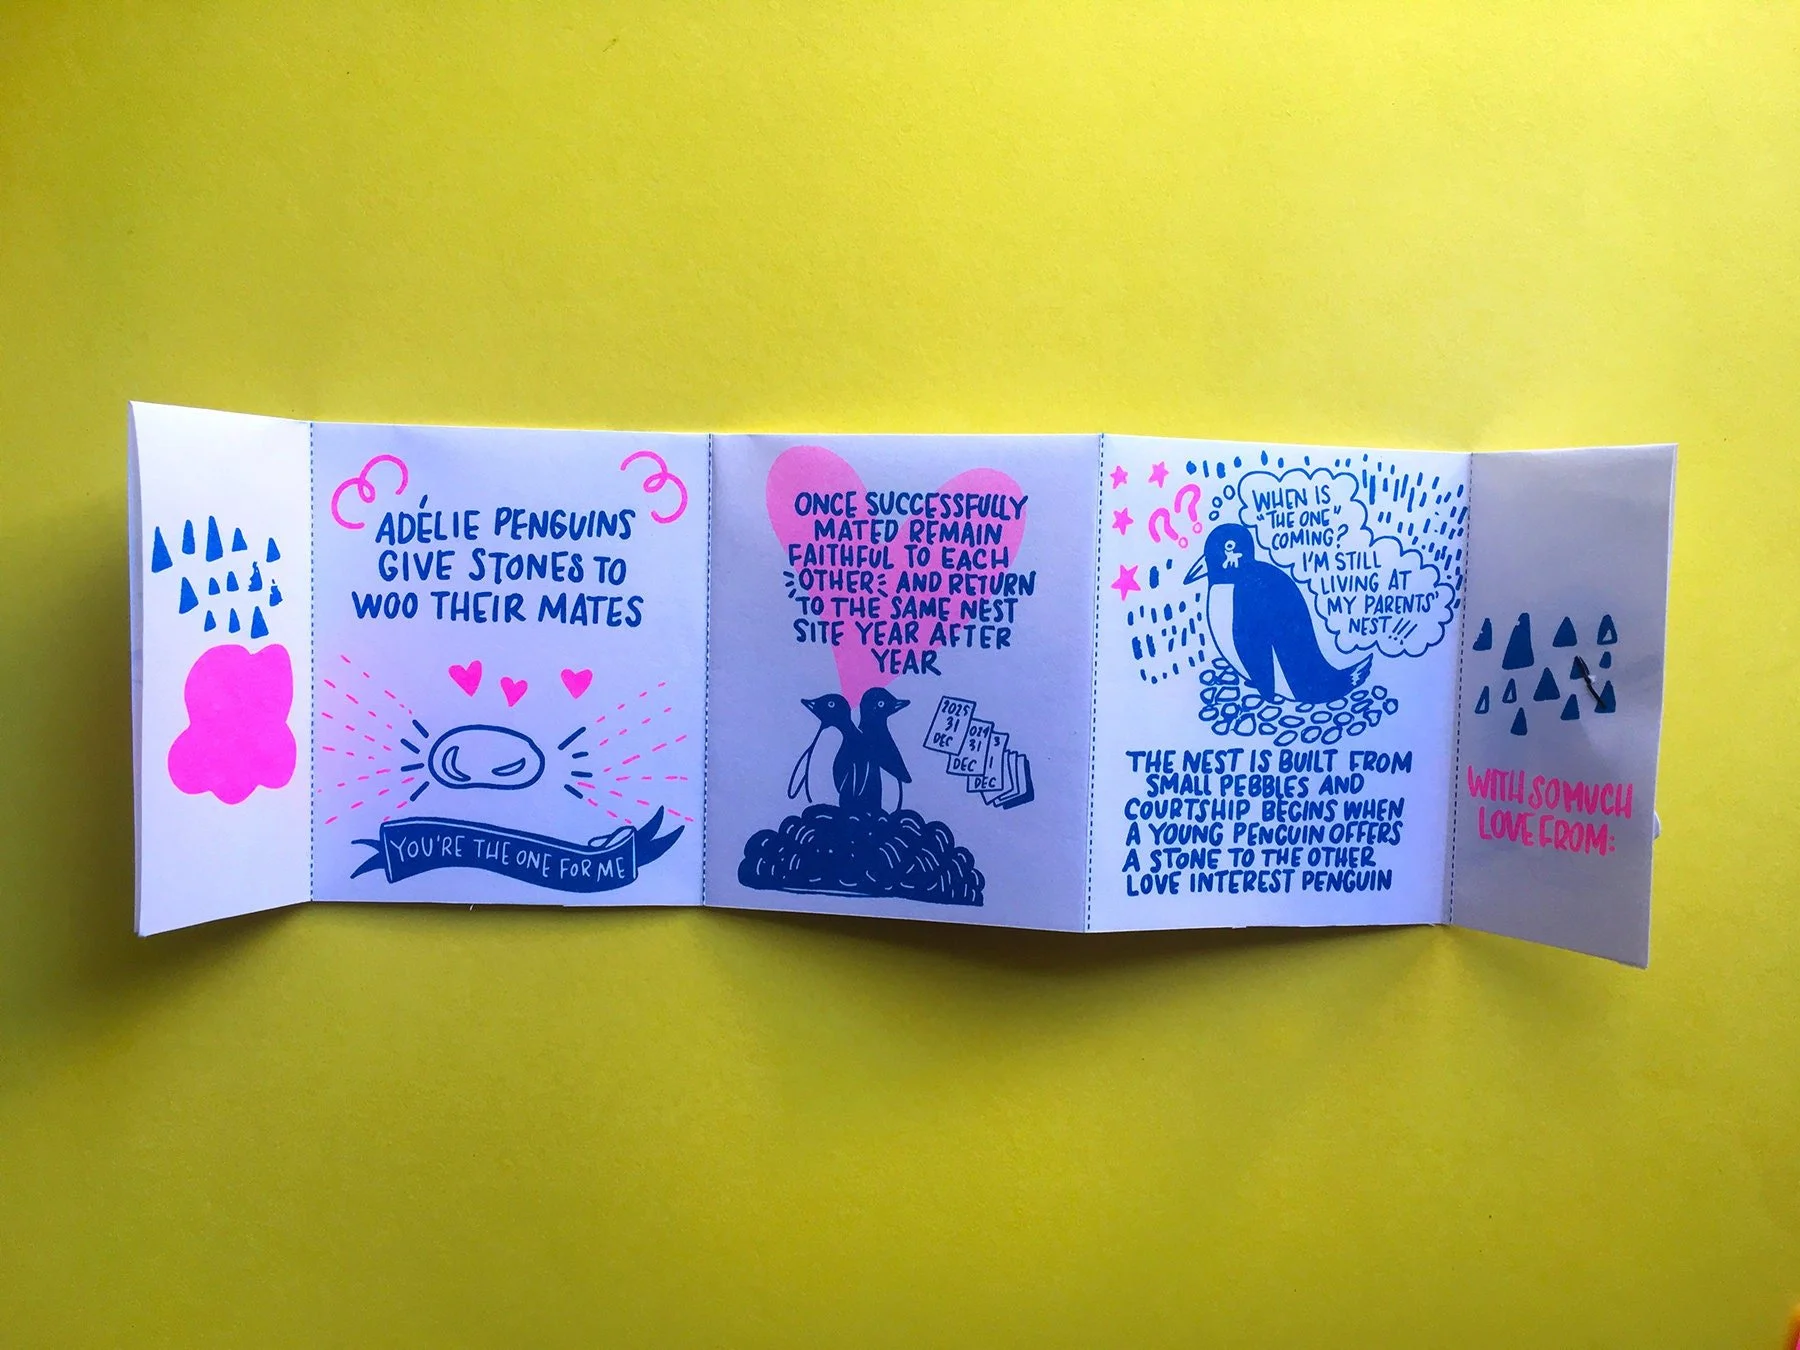 ADÉLIE PENGUINS
GIVE STONES TO
WOO THEIR MATES
YOU'RE THE ONE FOR ME
ONCE SUCCESSFULLY
MATED REMAIN
FAITHFUL TO EACH
OTHER AND RETURN
TO THE SAME NEST
SITE YEAR AFTER
YEAR
2025
31
DEC
31
DEC
DEC
??
WHEN IS
"THE ONE"
COMING?
I'M STILL
LIVING AT
MY PARENTS'
NEST!!!
THE NEST IS BUILT FROM
SMALL PEBBLES AND
COURTSHIP BEGINS WHEN
A YOUNG PENGUIN OFFERS
A STONE TO THE OTHER
LOVE INTEREST PENGUIN
WITH SO MUCH
LOVE FROM: